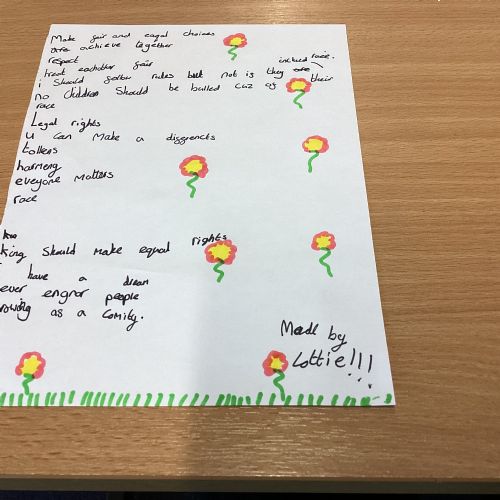 Make fair and eqaul choices
are achieve together
respect
treat eachother fair included race.
i Should follow rules but not is they are their
no children should be bulled cuz of
race
Legal rights
u can make a diggrencts
tollers
harmeng
eveyone matters
race
king should make equal rights
have a dream
ever engnor people
rowing as a comity.
Made by
Lottie!!!